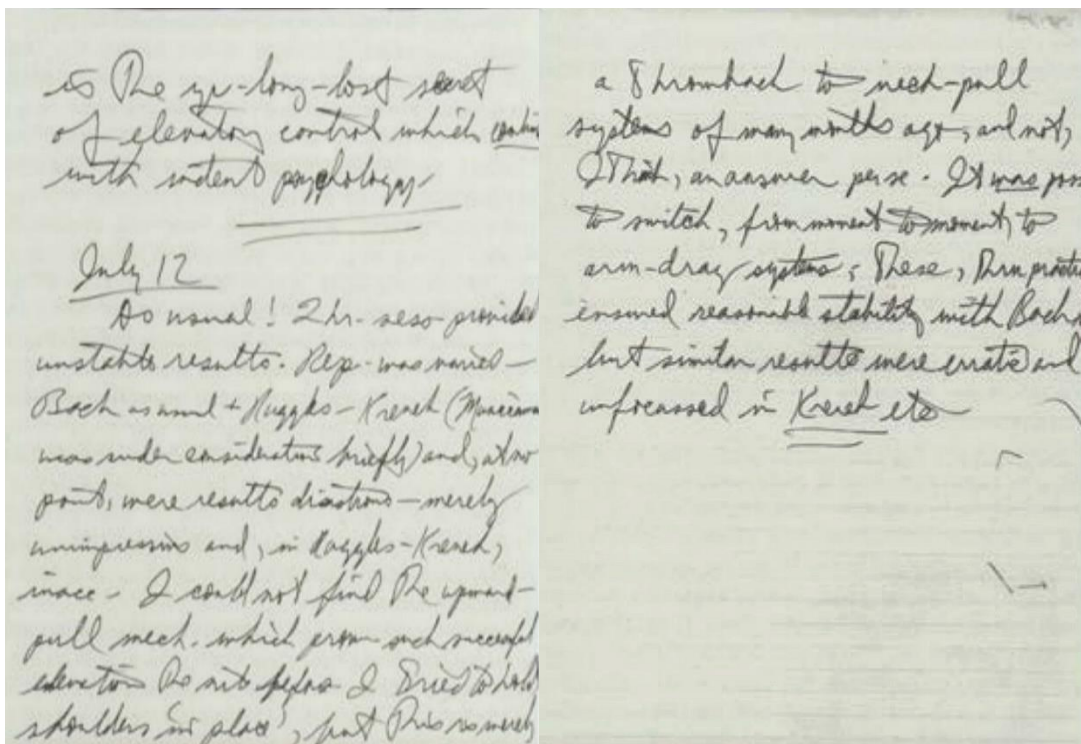 is the yr-long-lost secret
of elevatory control which
with intent psychology
July 12
As usual! 2 hr. sess. provided
unstable results. Rep. was varied -
Bach as usual + Ruggles - Krenek
was under consideration briefly) and, at no
point, were results disastrous - merely
unimpressive and, in Ruggles-Krenek,
inacc. I could not find the upward-
pull mech. which such successful
elevation the nite before I tried to hold
shoulders 'in place', but this is merely
a throwback to neck-pull
systems of many months ago, and not,
I think, an answer per se. It was poss
to switch, from moment to moment, to
arm-drag systems; these, thru practice
ensured reasonable stability with Bach
but similar results were erratic and
unfocussed in Krenek etc